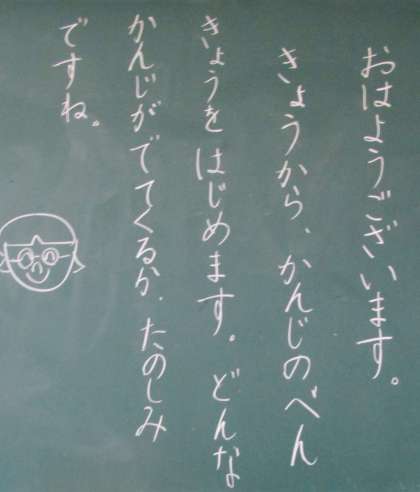 おはようございます。
きょうから、かんじのべん
きょうをはじめます。どんな
かんじがでてくるか、たのしみ
ですね。